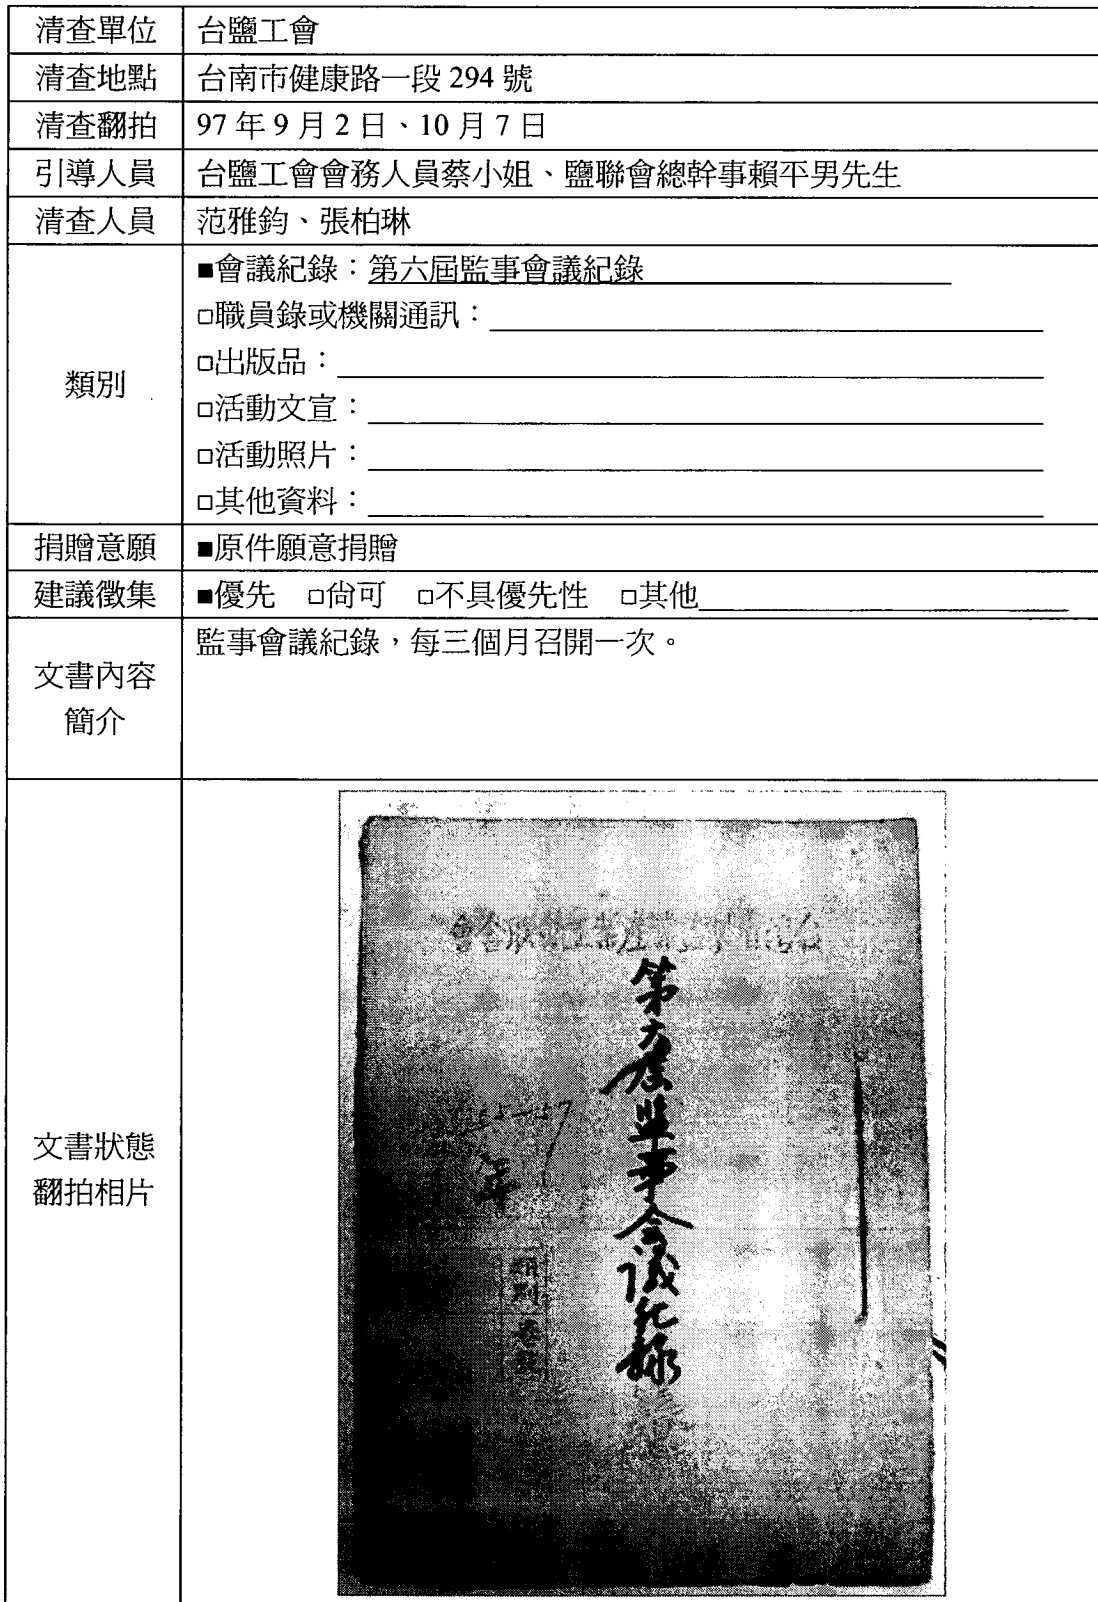 清查單位 台鹽工會
清查地點 台南市健康路一段 294 號
清查翻拍 97 年 9 月 2 日、10 月 7 日
引導人員 台鹽工會會務人員蔡小姐、鹽聯會總幹事賴平男先生
清查人員 范雅鈞、張柏琳
類別
■會議紀錄：第六屆監事會議紀錄
□職員錄或機關通訊：
□出版品：
□活動文宣：
□活動照片：
□其他資料：
捐贈意願 ■原件願意捐贈
建議徵集 ■優先 □尚可 □不具優先性 □其他
文書內容
簡介
監事會議紀錄，每三個月召開一次。
文書狀態
翻拍相片
第六屆监事会议紀録
類別